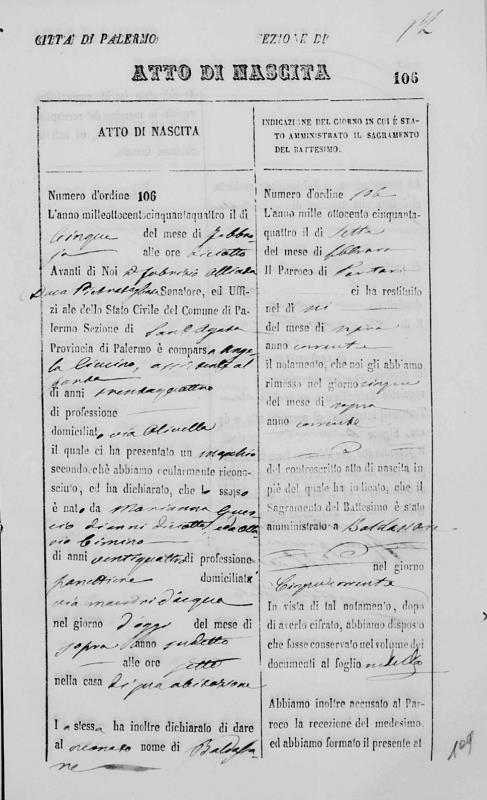 CITTA' DI PALERMO SEZIONE DI
12
ATTO DI NASCITA
106
ATTO DI NASCITA
Numero d'ordine 106
L'anno milleottocentocinquantaquattro il dì
Cinque del mese di Febbra
jo alle ore diciotto
Avanti di Noi D. Fabrizio Alliata
Duca Pietratagliata Senatore, ed Uffi-
ziale dello Stato Civile del Comune di Pa-
lermo Sezione di Sant'Agata
Provincia di Palermo è comparsa Ange
la
di anni trentaquattro
di professione
domiciliato via Olivella
il quale ci ha presentato un maschio
secondochè abbiamo ocularmente ricono-
sciuto, ed ha dichiarato, che lo stesso
è nato da Marianna
di anni diciotto ed
vio Cimino
di anni ventiquattro di professione
panettiere domiciliati
via
nel giorno d'oggi del mese di
sopra anno sudetto
alle ore sette
nella casa di sua abitazione
La stessa ha inoltre dichiarato di dare
al neonato nome di Baldassa
re
INDICAZIONE DEL GIORNO IN CUI È STA-
TO AMMINISTRATO IL SAGRAMENTO
DEL BATTESIMO.
Numero d'ordine 106
L'anno mille ottocento cinquanta-
quattro il dì Sette
del mese di febbraro
Il Parroco di
ci ha restituito
nel dì
del mese di sopra
anno corrente
il notamento, che noi gli abbiamo
rimesso nel giorno cinque
del mese di sopra
anno corrente
del controscritto atto di nascita in
piè del quale ha indicato, che il
Sagramento del Battesimo è stato
amministrato a Baldassare
nel giorno
Cinque corrente
In vista di tal notamento, dopo
di averlo cifrato, abbiamo disposto
che fosse conservato nel volume dei
documenti al foglio
Abbiamo inoltre accusato al Par-
roco la recezione del medesimo,
ed abbiamo formato il presente at
109